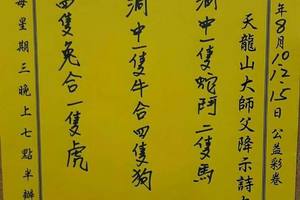 年8月10.12.15日公益彩卷
天龍山大師父降示詩
洞中一隻蛇阿二隻馬
洞中一隻牛合四隻狗
四隻兔合一隻虎
每星期三晚上七點半辦